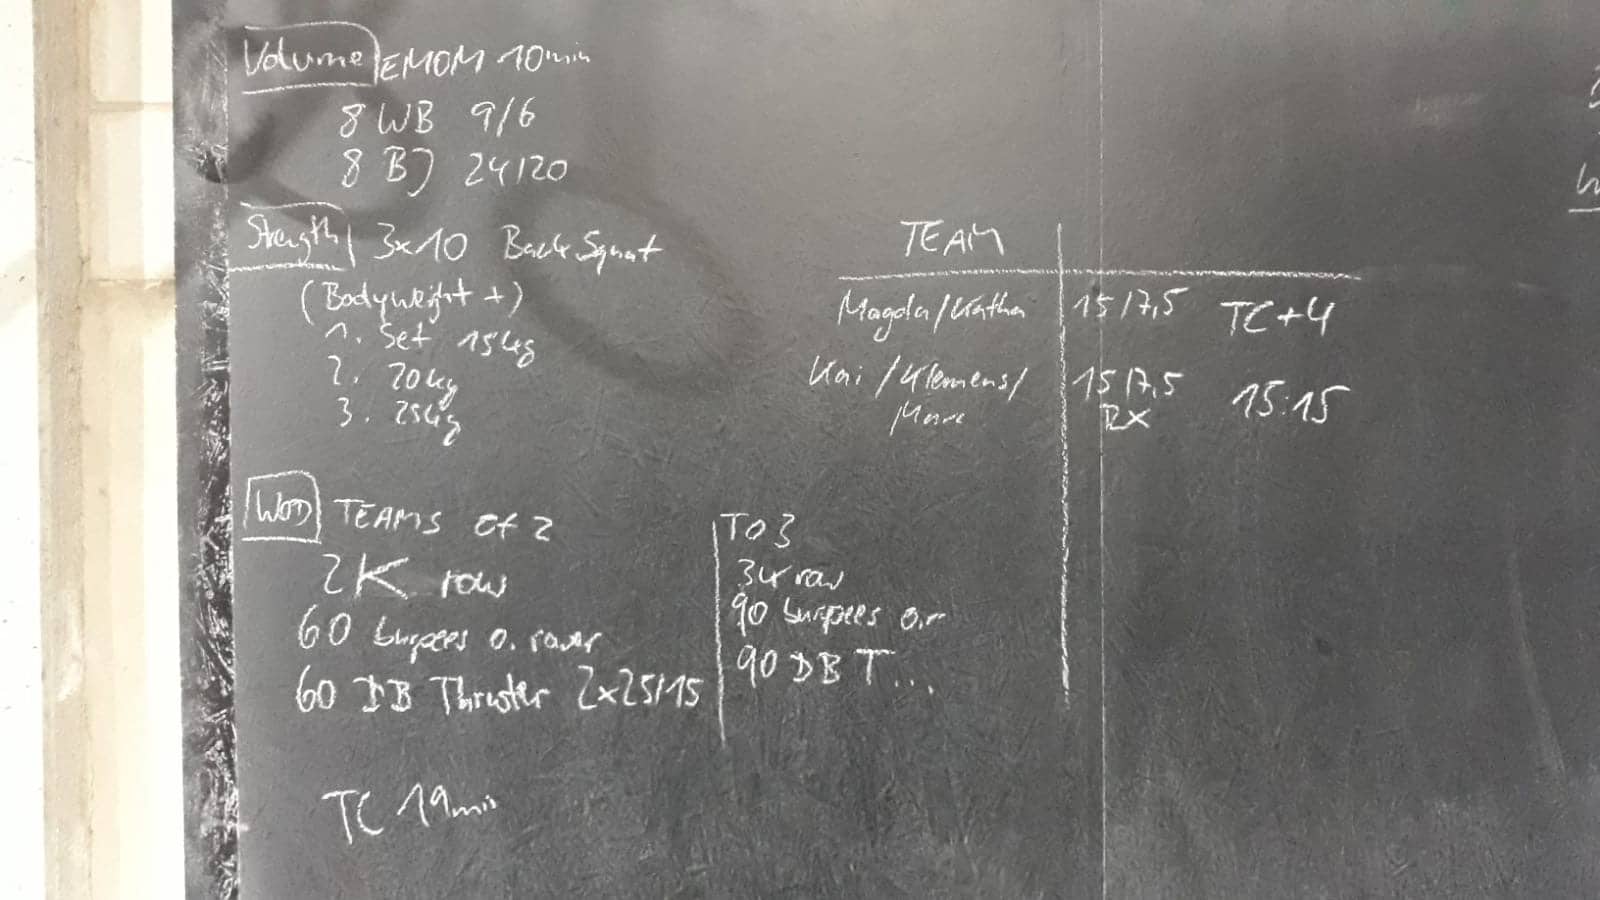 Volume EMOM 10min
8 WB 9/6
8 BJ 24/20
Strength 3x10 Back Squat
(Bodyweight +)
1. Set 15kg
2. 20kg
3. 25kg
WOD TEAMS of 2
2K row
60 burpees o. rower
60 DB Thruster 2x25/15
TC 19min
TO3
3K row
90 burpees o.r
90 DB T...
TEAM
Magda/Katha 15/7,5 TC+4
Kai/Klemens/ 15/7,5 15:15
Marc RX